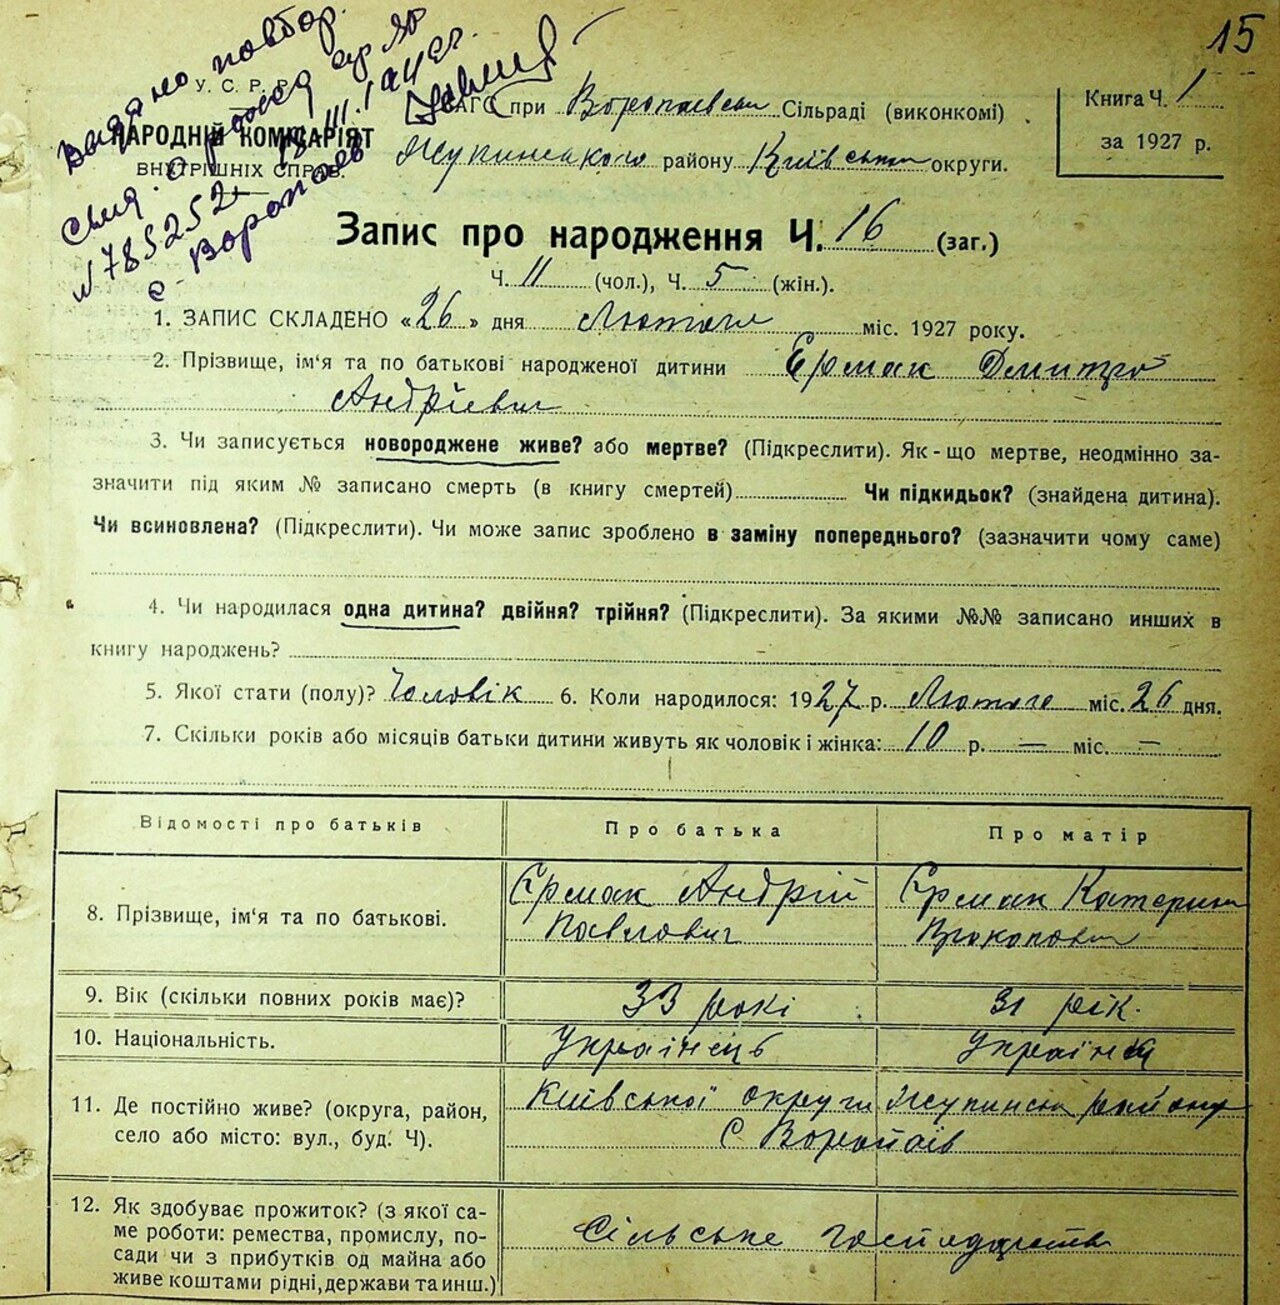 15
Видано повтор.
У. С. Р. Р.
НАРОДНІЙ КОМІСАРІЯТ
ВНУТРІШНІХ СПРАВ.
№ 785252
с Воропаев
ЗАГС при Воропаевськ Сільраді (виконкомі)
Жупинського району Київськ округи.
Книга Ч. 1
за 1927 р.
Запис про народження Ч. 16 (заг.)
Ч. 11 (чол.), Ч. 5 (жін.).
1. ЗАПИС СКЛАДЕНО «26» дня Лютого міс. 1927 року.
2. Прізвище, ім‘я та по батькові народженої дитини Єрмак Дмитро
Андрієвич
3. Чи записується новороджене живе? або мертве? (Підкреслити). Як-що мертве, неодмінно за-
значити під яким № записано смерть (в книгу смертей) Чи підкидьок? (знайдена дитина).
Чи всиновлена? (Підкреслити). Чи може запис зроблено в заміну попереднього? (зазначити чому саме)
4. Чи народилася одна дитина? двійня? трійня? (Підкреслити). За якими №№ записано инших в
книгу народжень?
5. Якої стати (полу)? Чоловік 6. Коли народилося: 1927 р. Лютого міс. 26 дня.
7. Скільки років або місяців батьки дитини живуть як чоловік і жінка: 10 р. — міс. —
Відомості про батьків
Про батька
Про матір
8. Прізвище, ім‘я та по батькові.
Єрмак Андрій
Павлович
Єрмак Катерина
Прокоповн
9. Вік (скільки повних років має)?
33 рокі
31 рік.
10. Національність.
Українець
Українка
11. Де постійно живе? (округа, район,
село або місто: вул., буд. Ч).
Київської округи Жупинськ району
с Воропаїв
12. Як здобуває прожиток? (з якої са-
ме роботи: ремества, промислу, по-
сади чи з прибутків од майна або
живе коштами рідні, держави та инш.)
Сільське господарство